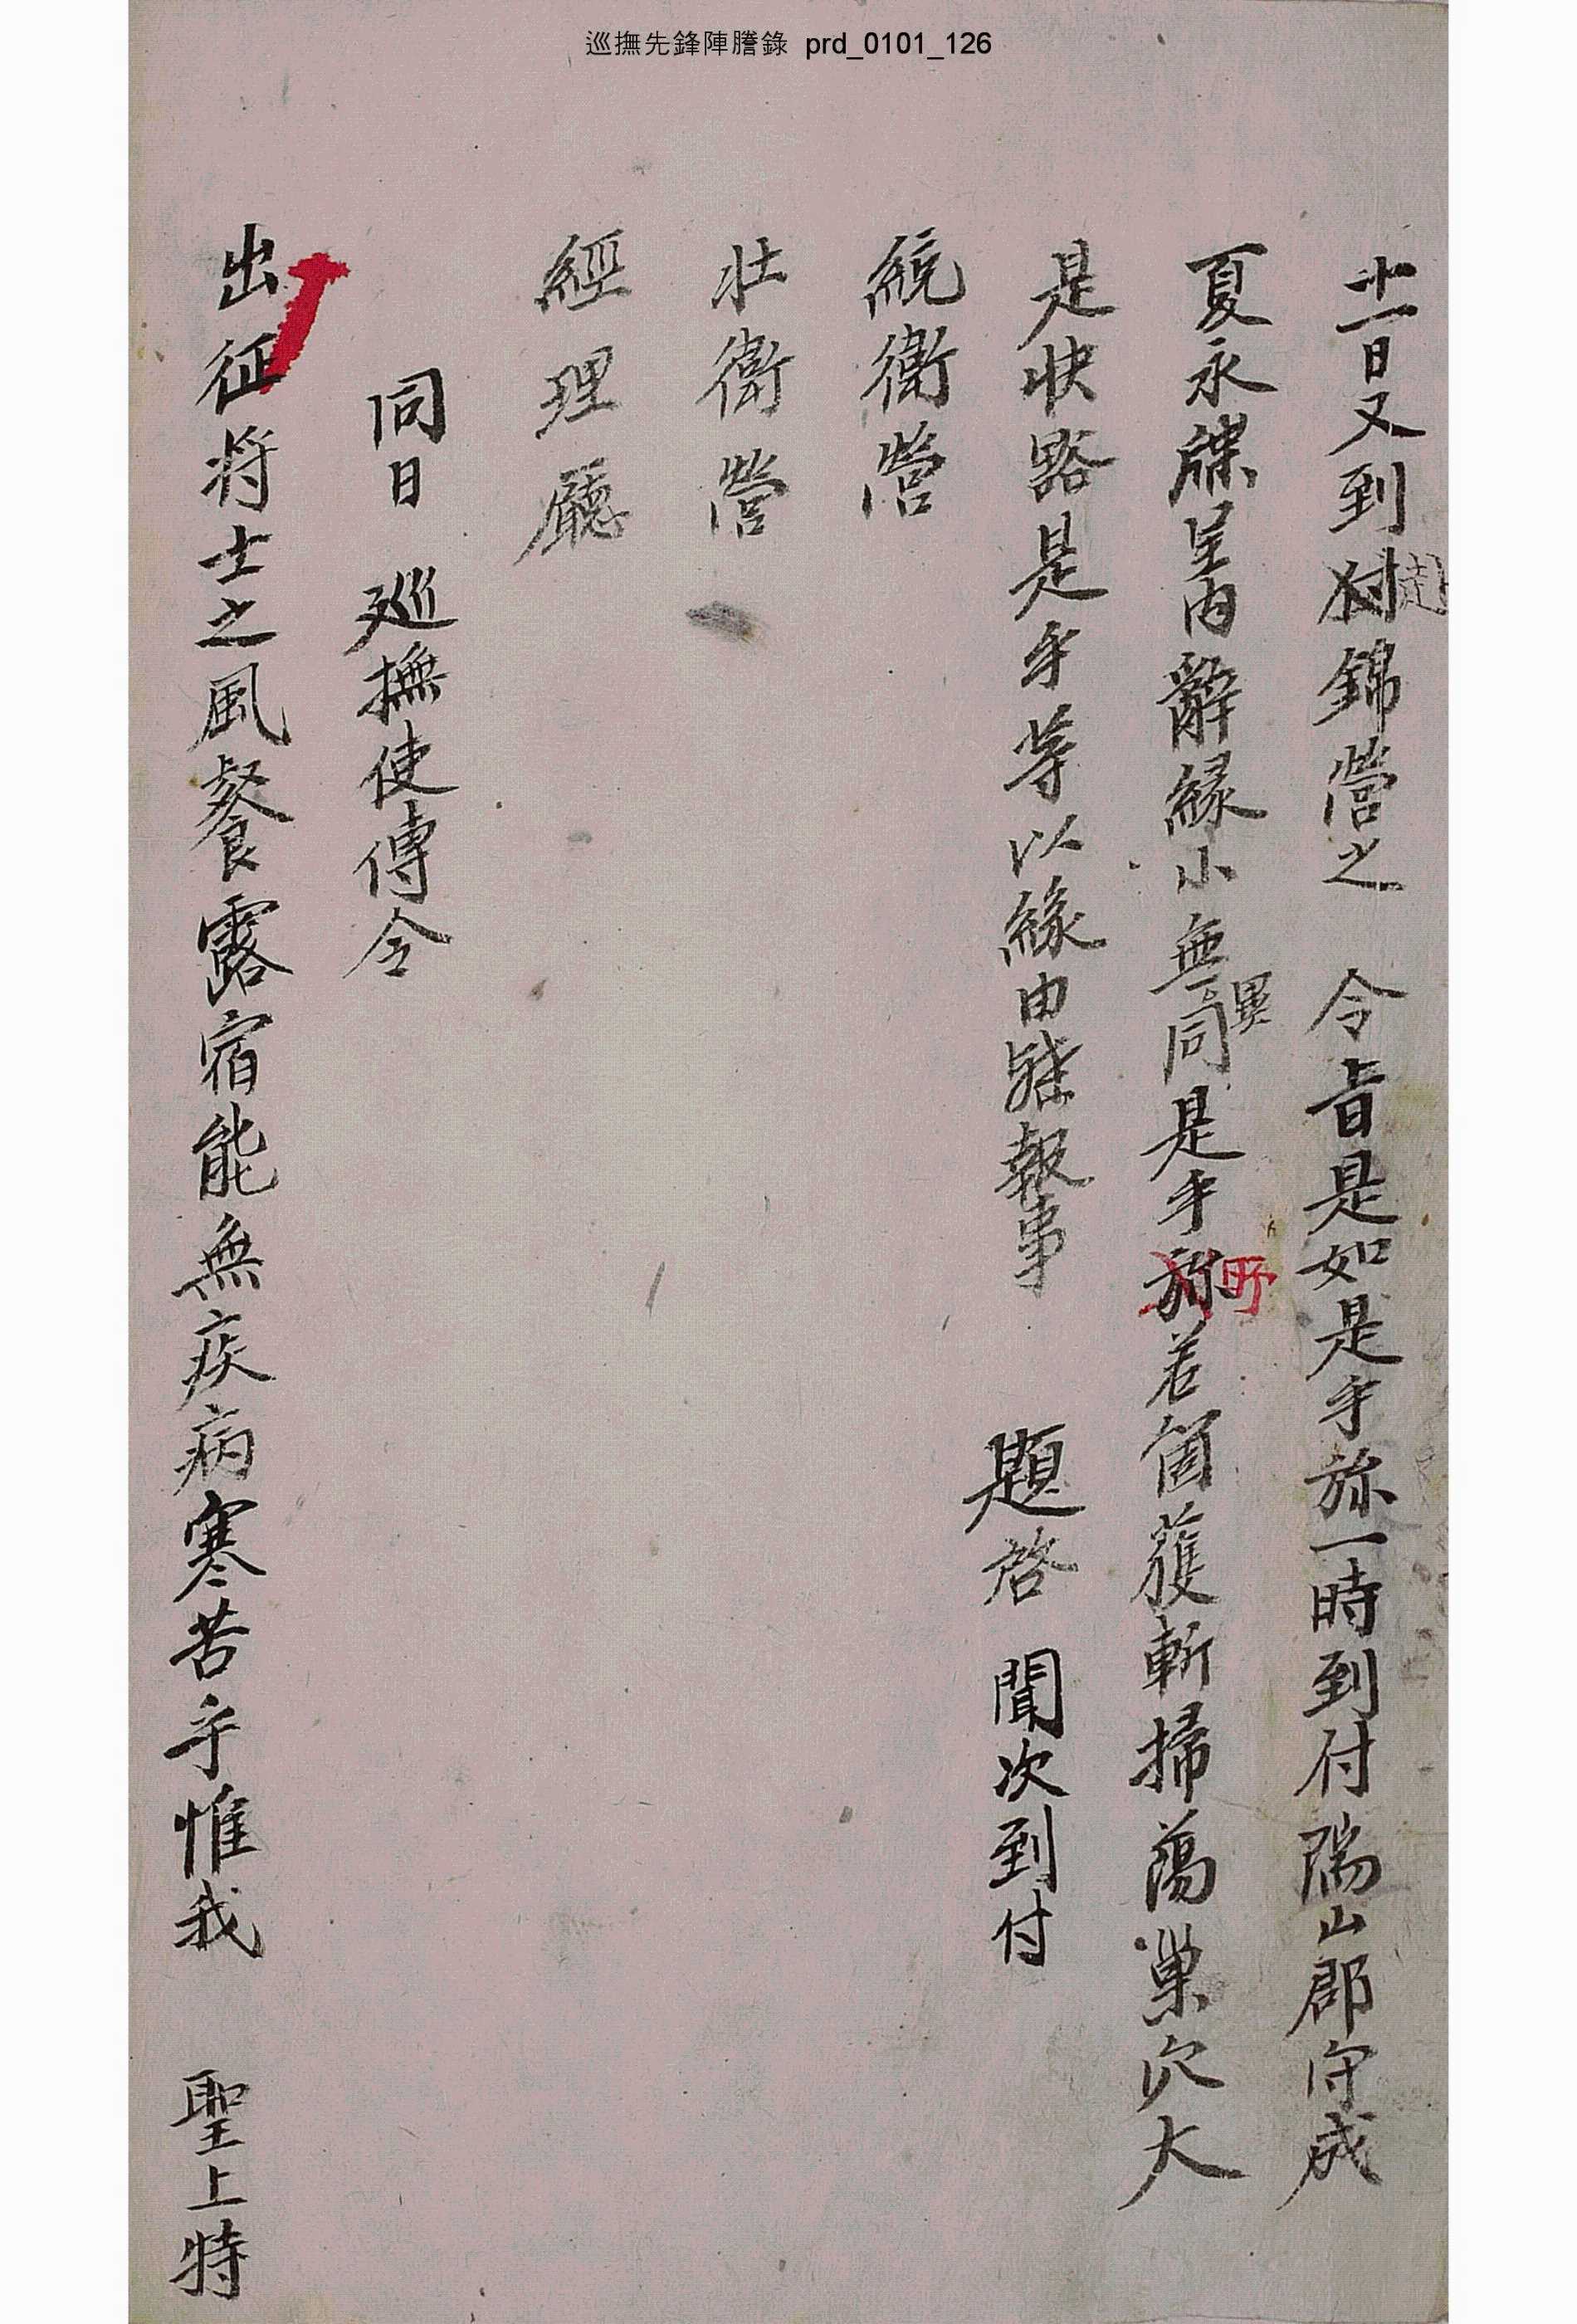 巡撫先鋒陣謄錄 prd_0101_126
十一日又到付錦營之 令旨是如是乎旀一時到付瑞山郡守成
夏永牒呈內辭緣小無異同是乎旀町若箇獲斬掃蕩巢穴大
是快畧是乎等以緣由牒報事 題啓 聞次到付
統衛營
壯衛營
經理廳
同日 廵撫使傳令
出征將士之風餐露宿能無疾病寒苦乎惟我 聖上特